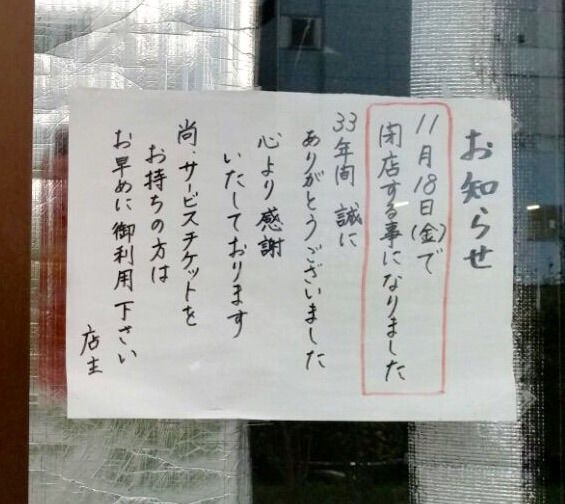 お知らせ
11月18日(金)で
閉店する事になりました
33年間 誠に
ありがとうございました
心より感謝
いたしております
尚・サービスチケットを
お持ちの方は
お早めに御利用下さい
店主